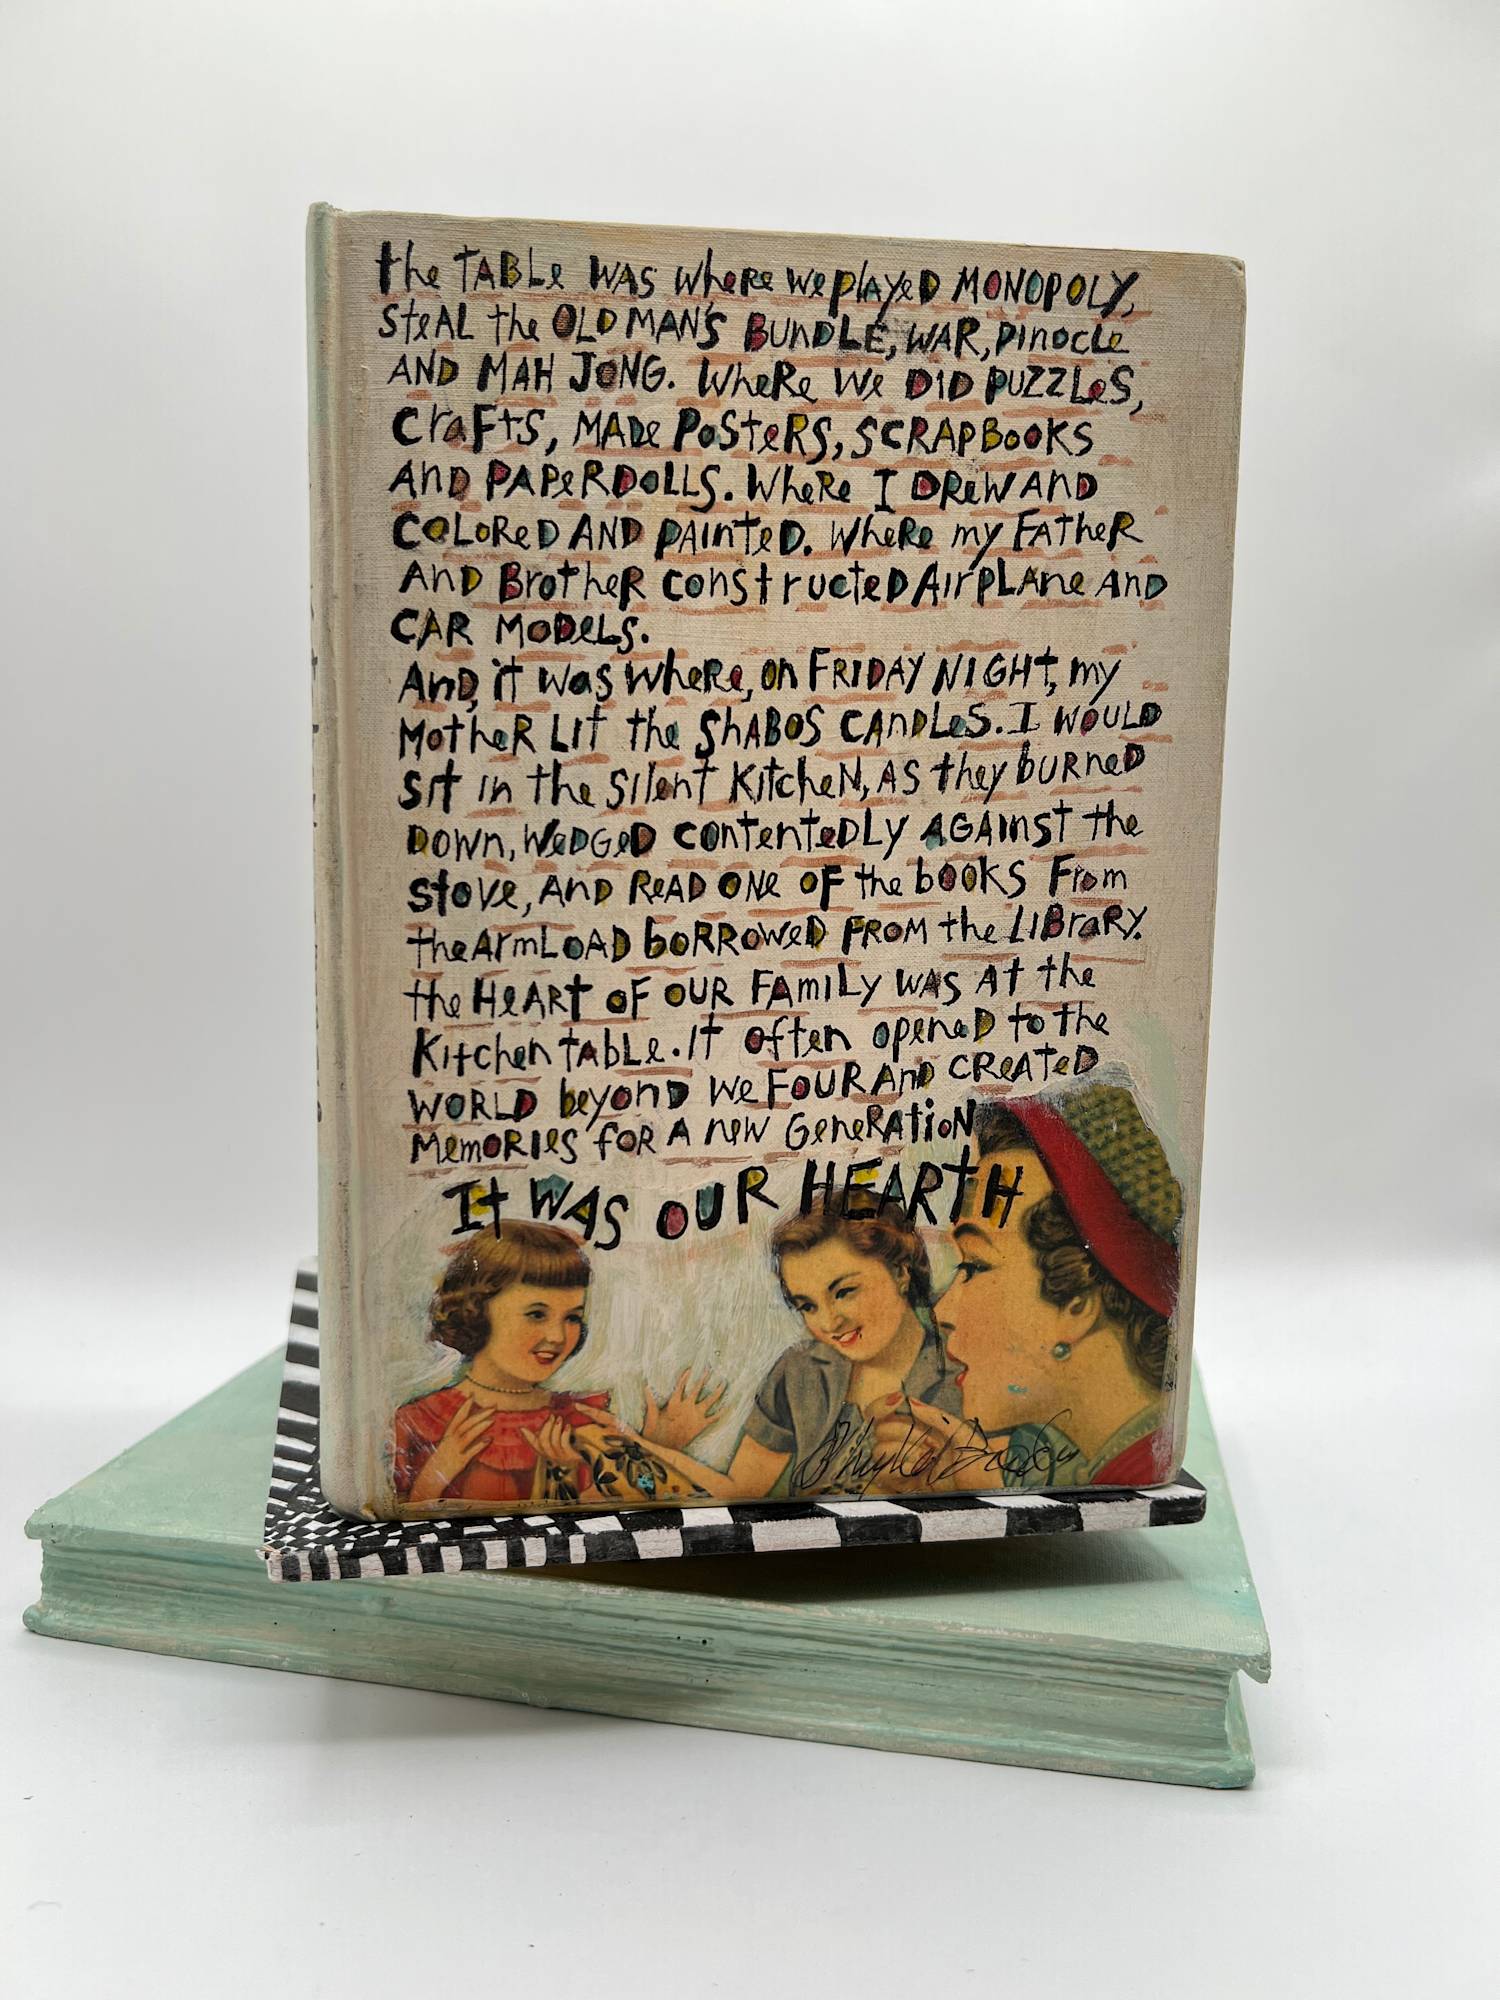 the TABLE WAS where we played MONOPOLY,
Steal the OLD MAN'S BUNDLE, WAR, Pinocle
AND MAH JONG. Where We DID PUZZLES,
Crafts, MADE POSTERS, SCRAPBOOKS
AND PAPERDOLLS. Where I DREW AND
COLORED AND PAINTED. Where my FATHER
AND BROTHER CONSTRUCTED AIRPLANE AND
CAR MODELS.
And, it was where, on FRIDAY NIGHT, my
MOTHER LIT the SHABOS CANDLES. I WOULD
sit in the silent KitcheN, AS they BURNED
DOWN, WEDGED CONTENTEDLY AGAINST the
Stove, AND READ ONE OF the books From
the ArmLOAD BORROWED FROM the LIBRARY.
the HEART OF OUR FAMILY WAS At the
Kitchen tABLE. It often opened to the
WORLD beyond we FOUR AND CREATED
Memories for A new GENERATION
It WAS OUR HEARTH